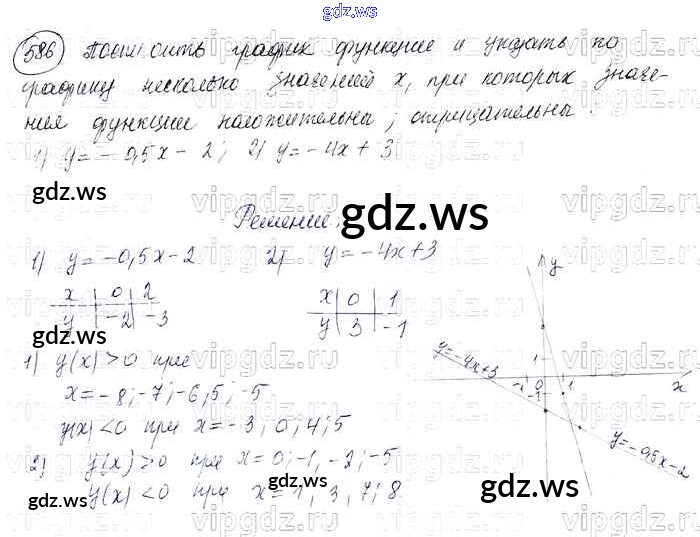 gdz.ws
586 Построить график функции и указать по
графику несколько значений x, при которых значе-
ния функции положительны; отрицательны.
1) y = -0,5x - 2; 2) y = -4x + 3
gdz.ws
Решение:
gdz.ws
1) y = -0,5x - 2 2) y = -4x + 3
x 0 2
y -2 -3
x 0 1
y 3 -1
gdz.ws
1) y(x) > 0 при
x = -8; -7; -6,5; -5
y(x) < 0 при x = -3; 0; 4; 5
2) y(x) > 0 при x = 0; -1, -2; -5
y(x) < 0 при x = 1, 3, 7; 8.
y
1
-1 0 1
-1
x
y = -4x + 3
y = -0,5x - 2
gdz.ws
gdz.ws
gdz.ws
vipgdz.ru